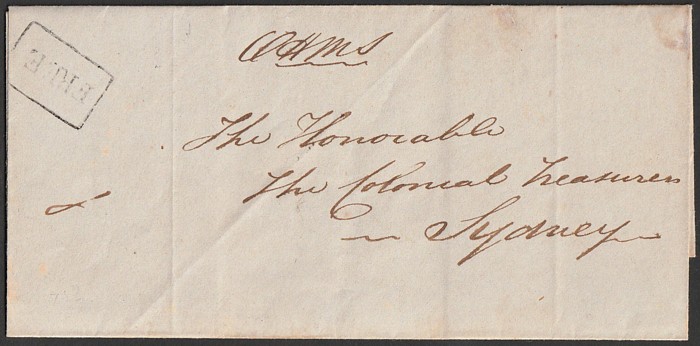 OHMS
FREE
The Honorable
The Colonial Treasurer
Sydney